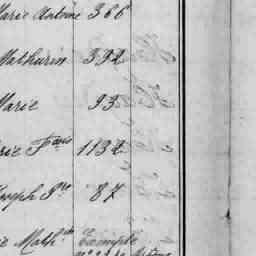 Marie Antoine 366
Mathurin 392
Marie 93
rie Fçois 1132
Joseph P.re 87
ie Math.
Exemple